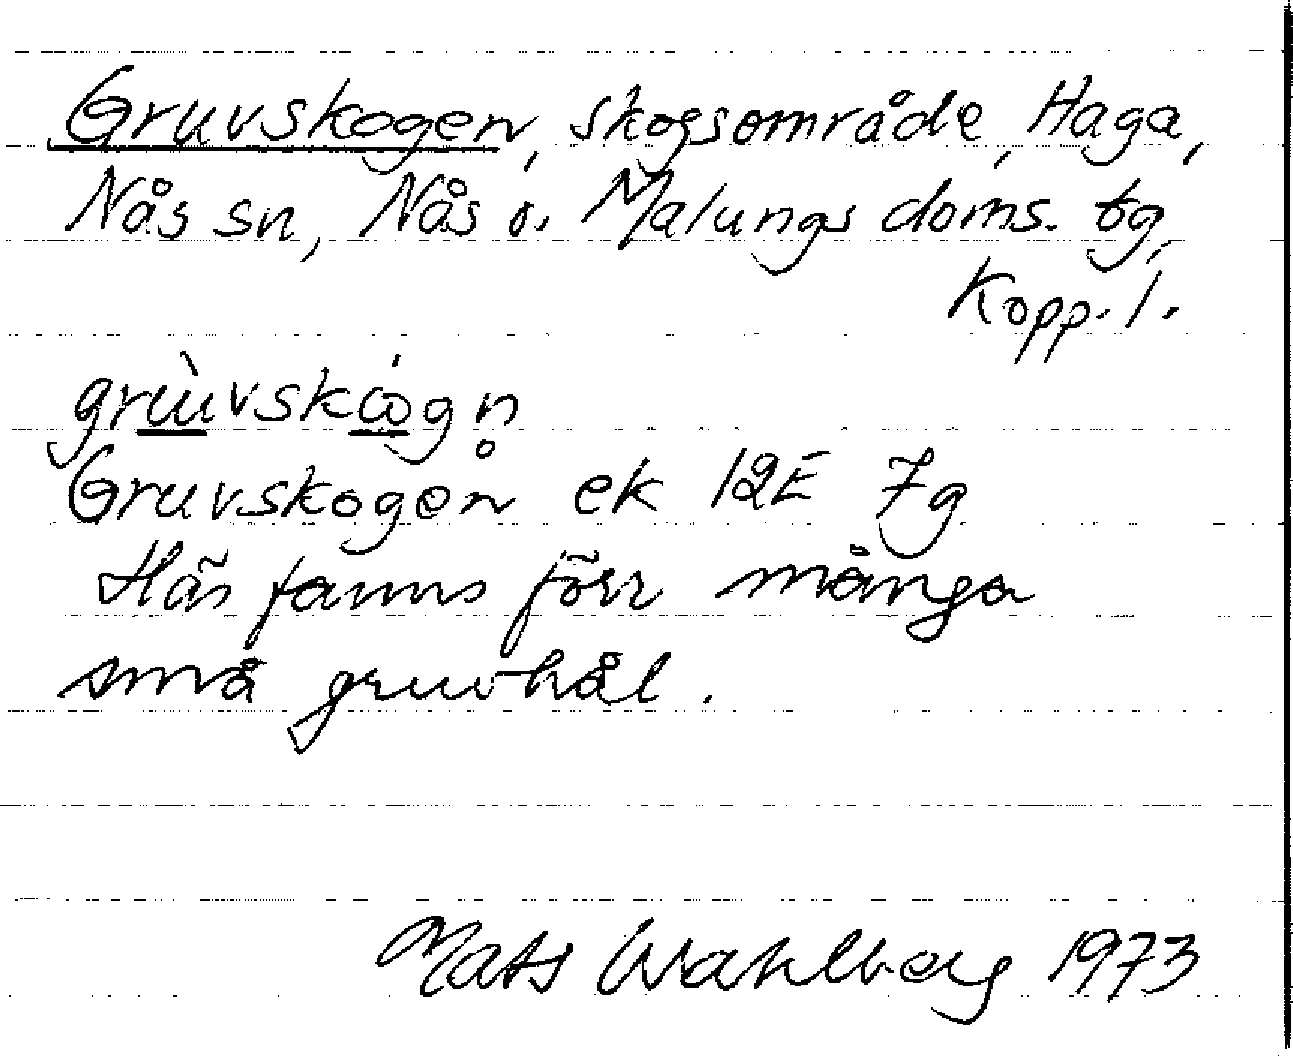 Gruvskogen, skogsområde, Haga,
Nås sn, Nås o. Malungs doms. tg,
Kopp. l.
grùvskógn̥
Gruvskogen ek 12E 7g
Här fanns förr många
små gruvhål.
Mats Wahlberg 1973